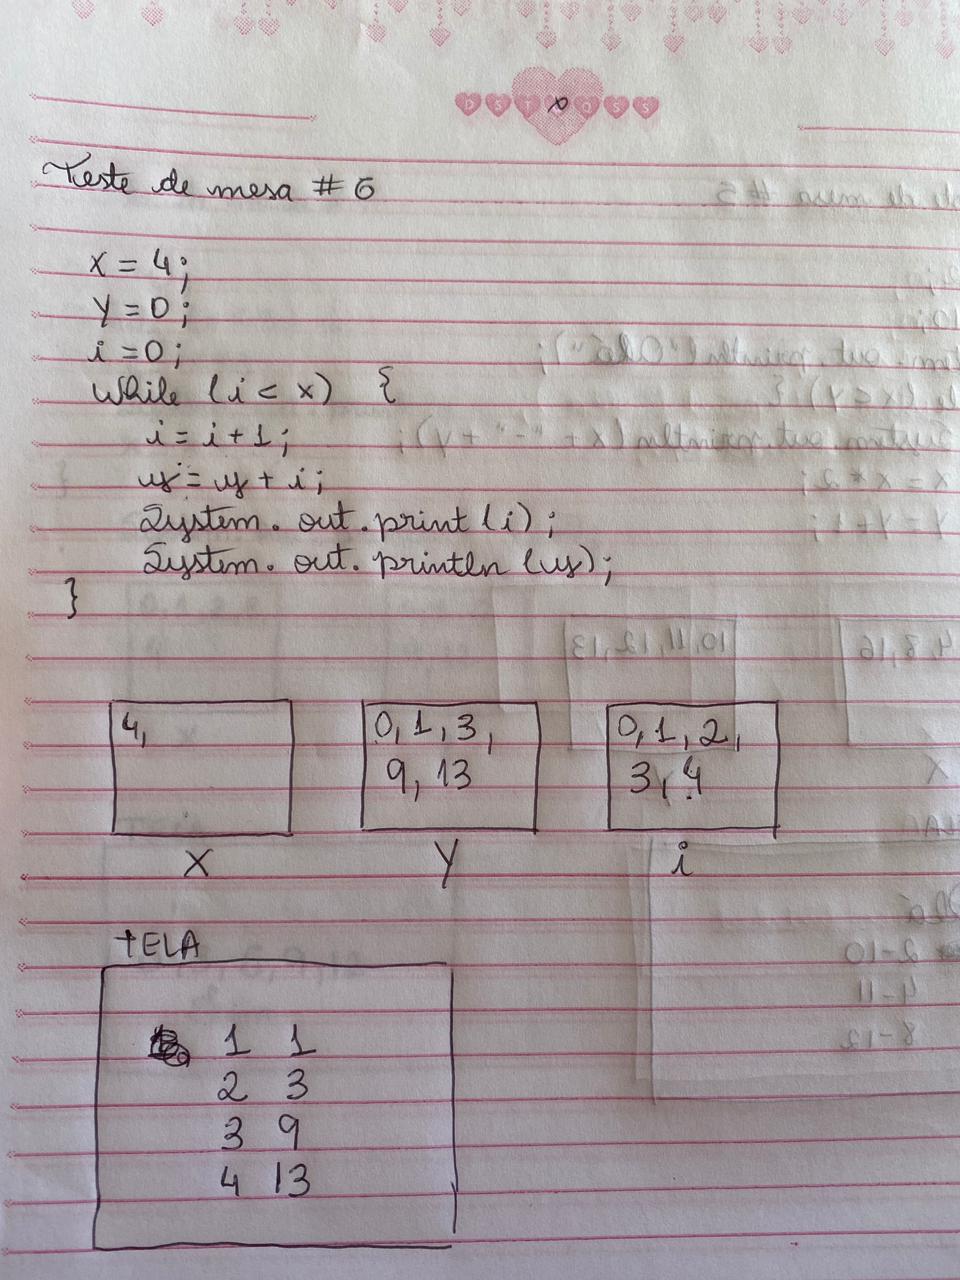 Teste de mesa # 6
x = 4;
y = 0;
i = 0;
while (i < x) {
i = i + 1;
y = y + i;
System.out.print(i);
System.out.println(y);
}
4,
0, 1, 3,
9, 13
0, 1, 2,
3, 4
X
Y
i
TELA
1 1
2 3
3 9
4 13